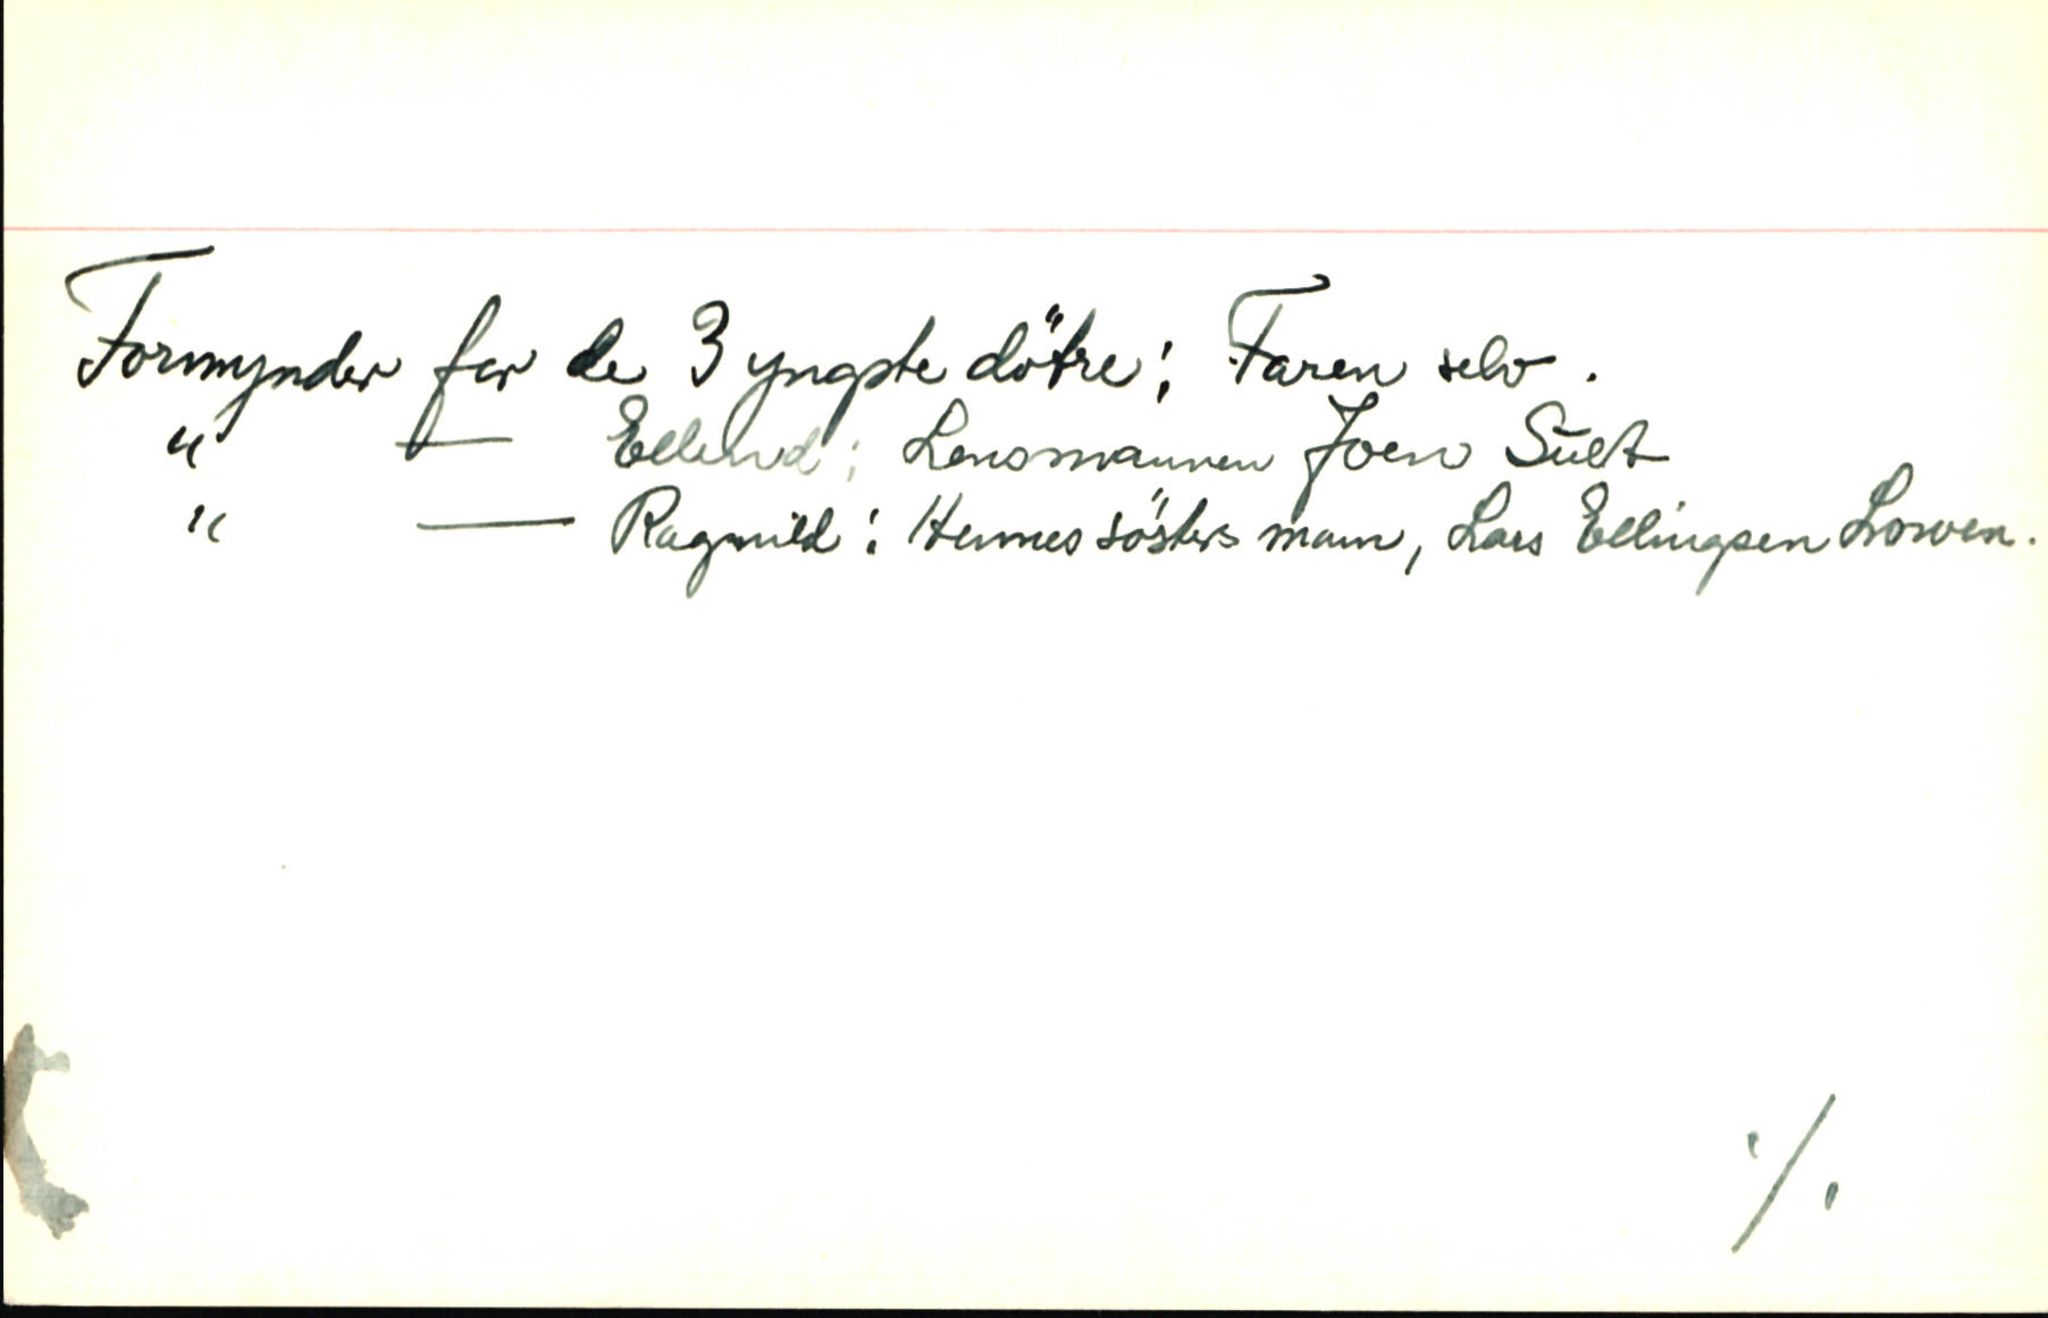 Formynder for de 3 yngste dötre: Faren selv.
" — Ellend: Lensmannen Joen Sült
" — Ragnild: Hennes sösters mann, Lars Ellingsen Lorven.
·/.